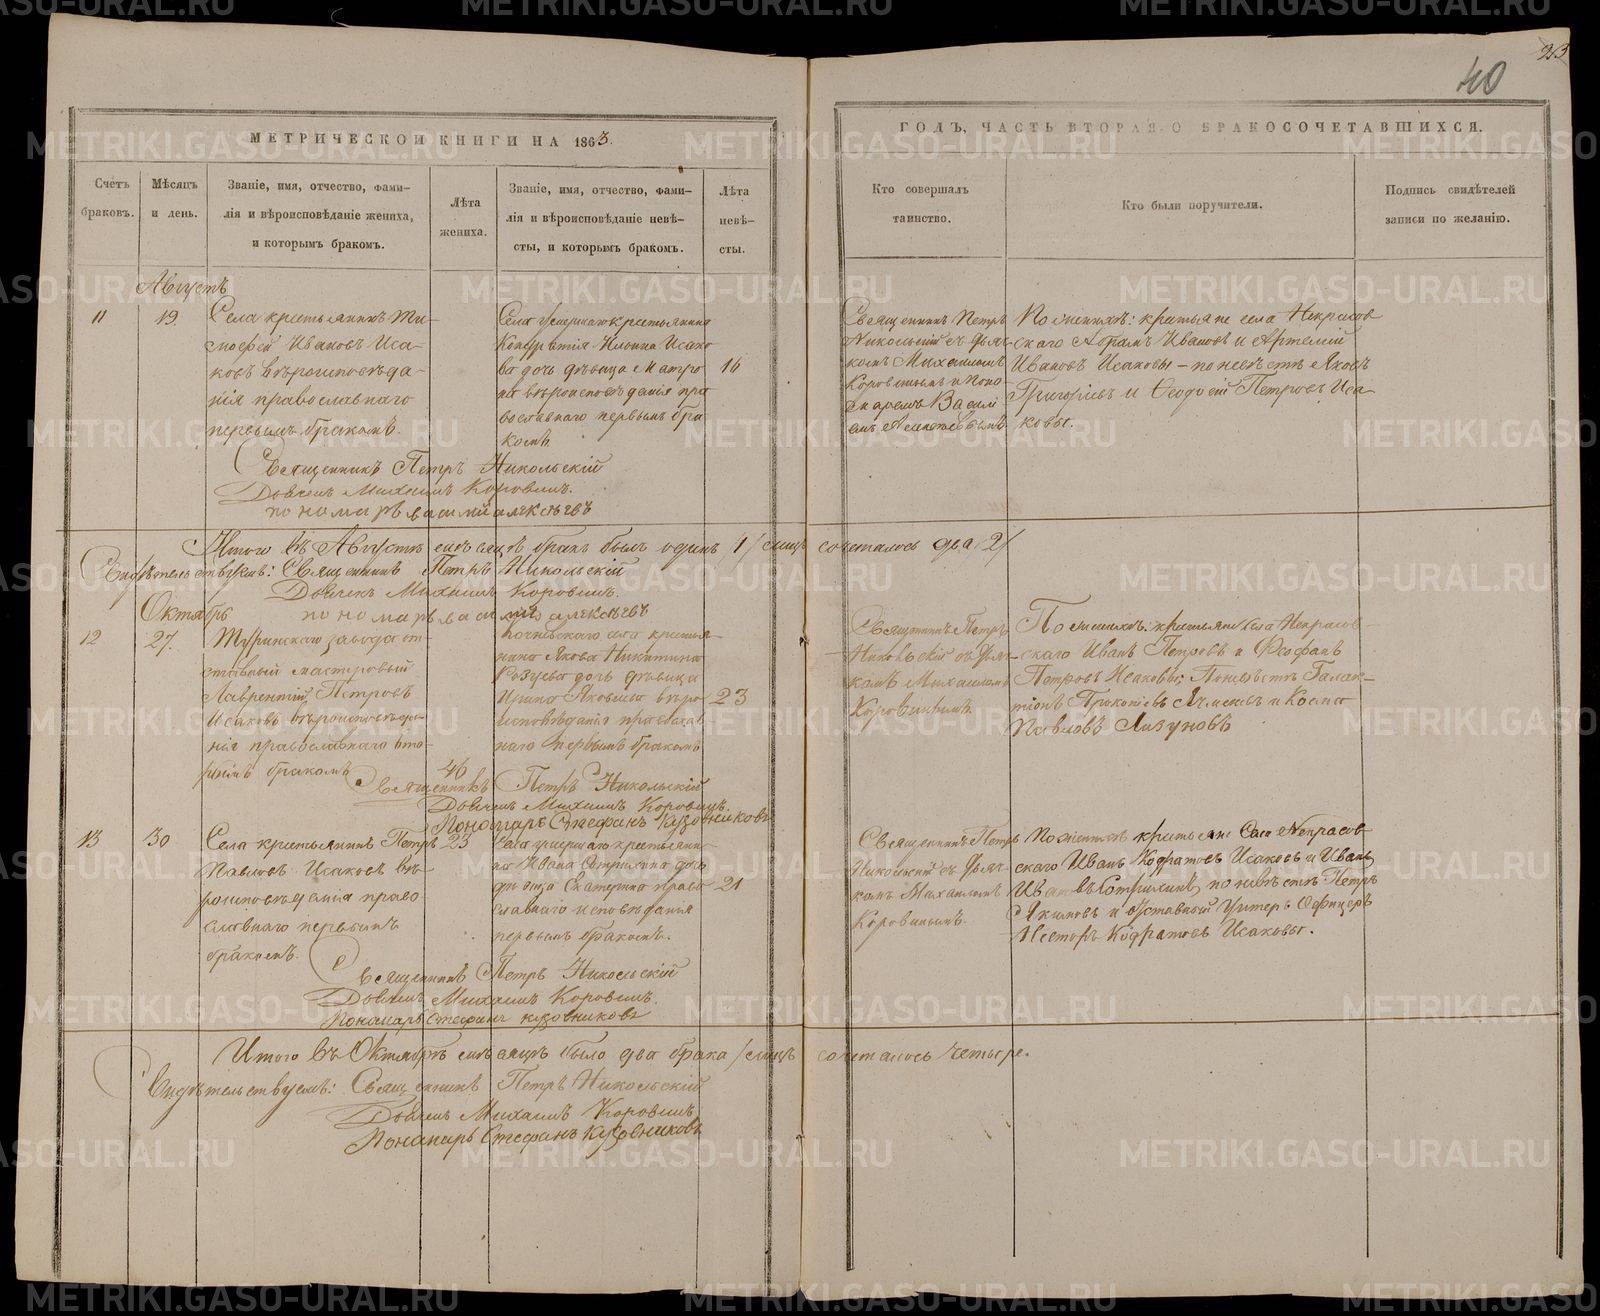 23
40
МЕТРИЧЕСКОЙ КНИГИ НА 1863.
ГОДЪ, ЧАСТЬ ВТОРАЯ О БРАКОСОЧЕТАВШИХСЯ.
Счетъ
браковъ.
Мѣсяцъ
и день.
Званіе, имя, отчество, фами-
лія и вѣроисповѣданіе жениха,
и которымъ бракомъ.
Лѣта
жениха.
Званіе, имя, отчество, фами-
лія и вѣроисповѣданіе невѣ-
сты, и которымъ бракомъ.
Лѣта
невѣ-
сты.
Кто совершалъ
таинство.
Кто были поручители.
Подпись свидѣтелей
записи по желанію.
Августъ
11
19.
Села крестьянинъ Ти-
моѳей Ивановъ Иса-
ковъ вѣроисповѣда-
нія православнаго
первымъ бракомъ.
Села умершаго крестьянина
Исако
ва дочь дѣвица Матро
на вѣроисповѣданія пра
вославнаго первымъ бра
комъ.
16
Священникъ Петръ
Никольскій съ Дьяч-
комъ Михаиломъ
Коровинымъ и Поно-
маремъ Васили
емъ Алексѣевымъ
По женихѣ: крестьяне села Некрасов
скаго Абрамъ Ивановъ и Артемій
Ивановъ Исаковы – по невѣстѣ Яковъ
Григорьевъ и Ѳеодосій Петровъ Иса
ковы.
Священникъ Петръ Никольскій
Дьячекъ Михаилъ Коровинъ.
пономарь василий алексѣевъ
Итого въ Августѣ мѣсяцѣ бракъ былъ одинъ 1/ лицъ сочеталось два /2/
Свидѣтельствуемъ: Священникъ Петръ Никольскій
Дьячекъ Михаилъ Коровинъ.
пономарь василий алексѣевъ
Октябрь
12
27.
Туринскаго завода от-
ставный мастеровый
Лаврентій Петровъ
Исаковъ вѣроисповѣда-
нія православнаго вто-
рымъ бракомъ
46
села крестья-
нина Якова Никитина
дочь дѣвица
Ирина Яковлева вѣро
исповѣданія православ
наго первымъ бракомъ
23
Священникъ Петръ
Никольскій съ Дьяч-
комъ Михаиломъ
Коровинымъ.
По женихѣ: крестьяне села Некрасов-
скаго Иванъ Петровъ и Ѳеофанъ
Петровъ Исаковы; По невѣстѣ Галак-
тіонъ Прокопьевъ Ячменевъ и Козма
Павловъ Лизуновъ
Священникъ Петръ Никольскій
Дьячекъ Михаилъ Коровинъ.
Пономарь Стефанъ Кузовниковъ
13
30
Села крестьянинъ Петръ
Павловъ Исаковъ вѣ-
роисповѣданія право-
славнаго первымъ
бракомъ.
23
Села умершаго крестьяни-
на Ивана дочь
дѣвица Екатерина право
славнаго исповѣданія
первымъ бракомъ.
21
Священникъ Петръ
Никольскій съ Дьяч-
комъ Михаиломъ
Коровинымъ.
По женихѣ крестьяне Села Некрасов
скаго Иванъ Кодратовъ Исаковъ и Иванъ
Ивановъ по невѣстѣ Петръ
Якимовъ и Отставной Унтеръ Офицеръ
Несторъ Кодратовъ Исаковы.
Священникъ Петръ Никольскій
Дьячекъ Михаилъ Коровинъ.
Пономарь Стефанъ кузовниковъ
Итого въ Октябрѣ мѣсяцѣ было два брака / лицъ сочеталось четыре.
Свидѣтельствуемъ: Священникъ Петръ Никольскій
Дьячекъ Михаилъ Коровинъ
Пономарь Стефанъ Кузовниковъ
METRIKI.GASO-URAL.RU